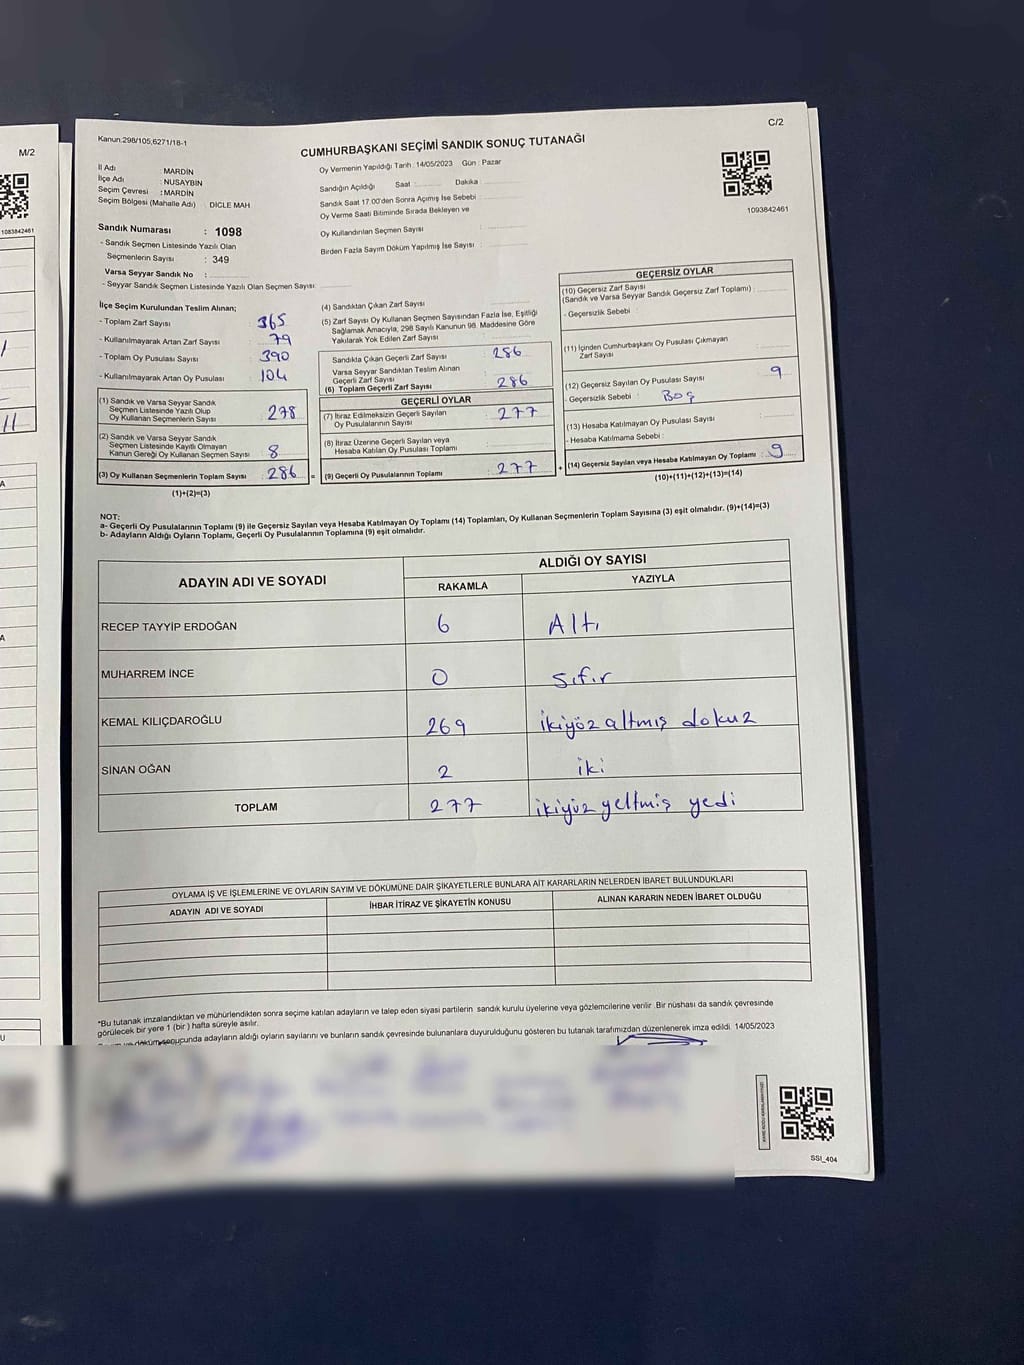 M/2
1083842461
11
A
A
U
Kanun:298/105,6271/18-1
C/2
CUMHURBAŞKANI SEÇİMİ SANDIK SONUÇ TUTANAĞI
İl Adı : MARDİN
İlçe Adı : NUSAYBİN
Seçim Çevresi : MARDİN
Seçim Bölgesi (Mahalle Adı) : DİCLE MAH
Oy Vermenin Yapıldığı Tarih : 14/05/2023 Gün : Pazar
Sandığın Açıldığı Saat : Dakika :
Sandık Saat 17:00'den Sonra Açımış İse Sebebi :
Oy Verme Saati Bitiminde Sırada Bekleyen ve
Oy Kullandırılan Seçmen Sayısı :
Birden Fazla Sayım Döküm Yapılmış İse Sayısı :
1093842461
Sandık Numarası : 1098
- Sandık Seçmen Listesinde Yazılı Olan
Seçmenlerin Sayısı : 349
Varsa Seyyar Sandık No :
- Seyyar Sandık Seçmen Listesinde Yazılı Olan Seçmen Sayısı:
İlçe Seçim Kurulundan Teslim Alınan;
- Toplam Zarf Sayısı : 365
- Kullanılmayarak Artan Zarf Sayısı : 79
- Toplam Oy Pusulası Sayısı : 390
- Kullanılmayarak Artan Oy Pusulası : 104
(1) Sandık ve Varsa Seyyar Sandık
Seçmen Listesinde Yazılı Olup
Oy Kullanan Seçmenlerin Sayısı : 278
(2) Sandık ve Varsa Seyyar Sandık
Seçmen Listesinde Kayıtlı Olmayan
Kanun Gereği Oy Kullanan Seçmen Sayısı : 8
(3) Oy Kullanan Seçmenlerin Toplam Sayısı : 286
(1)+(2)=(3)
(4) Sandıktan Çıkan Zarf Sayısı
(5) Zarf Sayısı Oy Kullanan Seçmen Sayısından Fazla İse, Eşitliği
Sağlamak Amacıyla, 298 Sayılı Kanunun 98. Maddesine Göre
Yakılarak Yok Edilen Zarf Sayısı :
Sandıkta Çıkan Geçerli Zarf Sayısı : 286
Varsa Seyyar Sandıktan Teslim Alınan
Geçerli Zarf Sayısı
(6) Toplam Geçerli Zarf Sayısı : 286
GEÇERLİ OYLAR
(7) İtiraz Edilmeksizin Geçerli Sayılan
Oy Pusulalarının Sayısı : 277
(8) İtiraz Üzerine Geçerli Sayılan veya
Hesaba Katılan Oy Pusulası Toplamı
= (9) Geçerli Oy Pusulalarının Toplamı : 277
GEÇERSİZ OYLAR
(10) Geçersiz Zarf Sayısı
(Sandık ve Varsa Seyyar Sandık Geçersiz Zarf Toplamı) :
- Geçersizlik Sebebi :
(11) İçinden Cumhurbaşkanı Oy Pusulası Çıkmayan
Zarf Sayısı
(12) Geçersiz Sayılan Oy Pusulası Sayısı : 9
- Geçersizlik Sebebi : Boş
(13) Hesaba Katılmayan Oy Pusulası Sayısı :
- Hesaba Katılmama Sebebi :
+ (14) Geçersiz Sayılan veya Hesaba Katılmayan Oy Toplamı : 9
(10)+(11)+(12)+(13)=(14)
NOT:
a- Geçerli Oy Pusulalarının Toplamı (9) ile Geçersiz Sayılan veya Hesaba Katılmayan Oy Toplamı (14) Toplamları, Oy Kullanan Seçmenlerin Toplam Sayısına (3) eşit olmalıdır. (9)+(14)=(3)
b- Adayların Aldığı Oyların Toplamı, Geçerli Oy Pusulalarının Toplamına (9) eşit olmalıdır.
ADAYIN ADI VE SOYADI
ALDIĞI OY SAYISI
RAKAMLA YAZIYLA
RECEP TAYYİP ERDOĞAN 6 Altı
MUHARREM İNCE 0 Sıfır
KEMAL KILIÇDAROĞLU 269 ikiyüz altmış dokuz
SİNAN OĞAN 2 iki
TOPLAM 277 ikiyüz yeltmiş yedi
OYLAMA İŞ VE İŞLEMLERİNE VE OYLARIN SAYIM VE DÖKÜMÜNE DAİR ŞİKAYETLERLE BUNLARA AİT KARARLARIN NELERDEN İBARET BULUNDUKLARI
ADAYIN ADI VE SOYADI İHBAR İTİRAZ VE ŞİKAYETİN KONUSU ALINAN KARARIN NEDEN İBARET OLDUĞU
*Bu tutanak imzalandıktan ve mühürlendikten sonra seçime katılan adayların ve talep eden siyasi partilerin sandık kurulu üyelerine veya gözlemcilerine verilir .Bir nüshası da sandık çevresinde
görülecek bir yere 1 (bir ) hafta süreyle asılır.
adayların aldığı oyların sayılarını ve bunların sandık çevresinde bulunanlara duyurulduğunu gösteren bu tutanak tarafımızdan düzenlenerek imza edildi. 14/05/2023
SSI_404